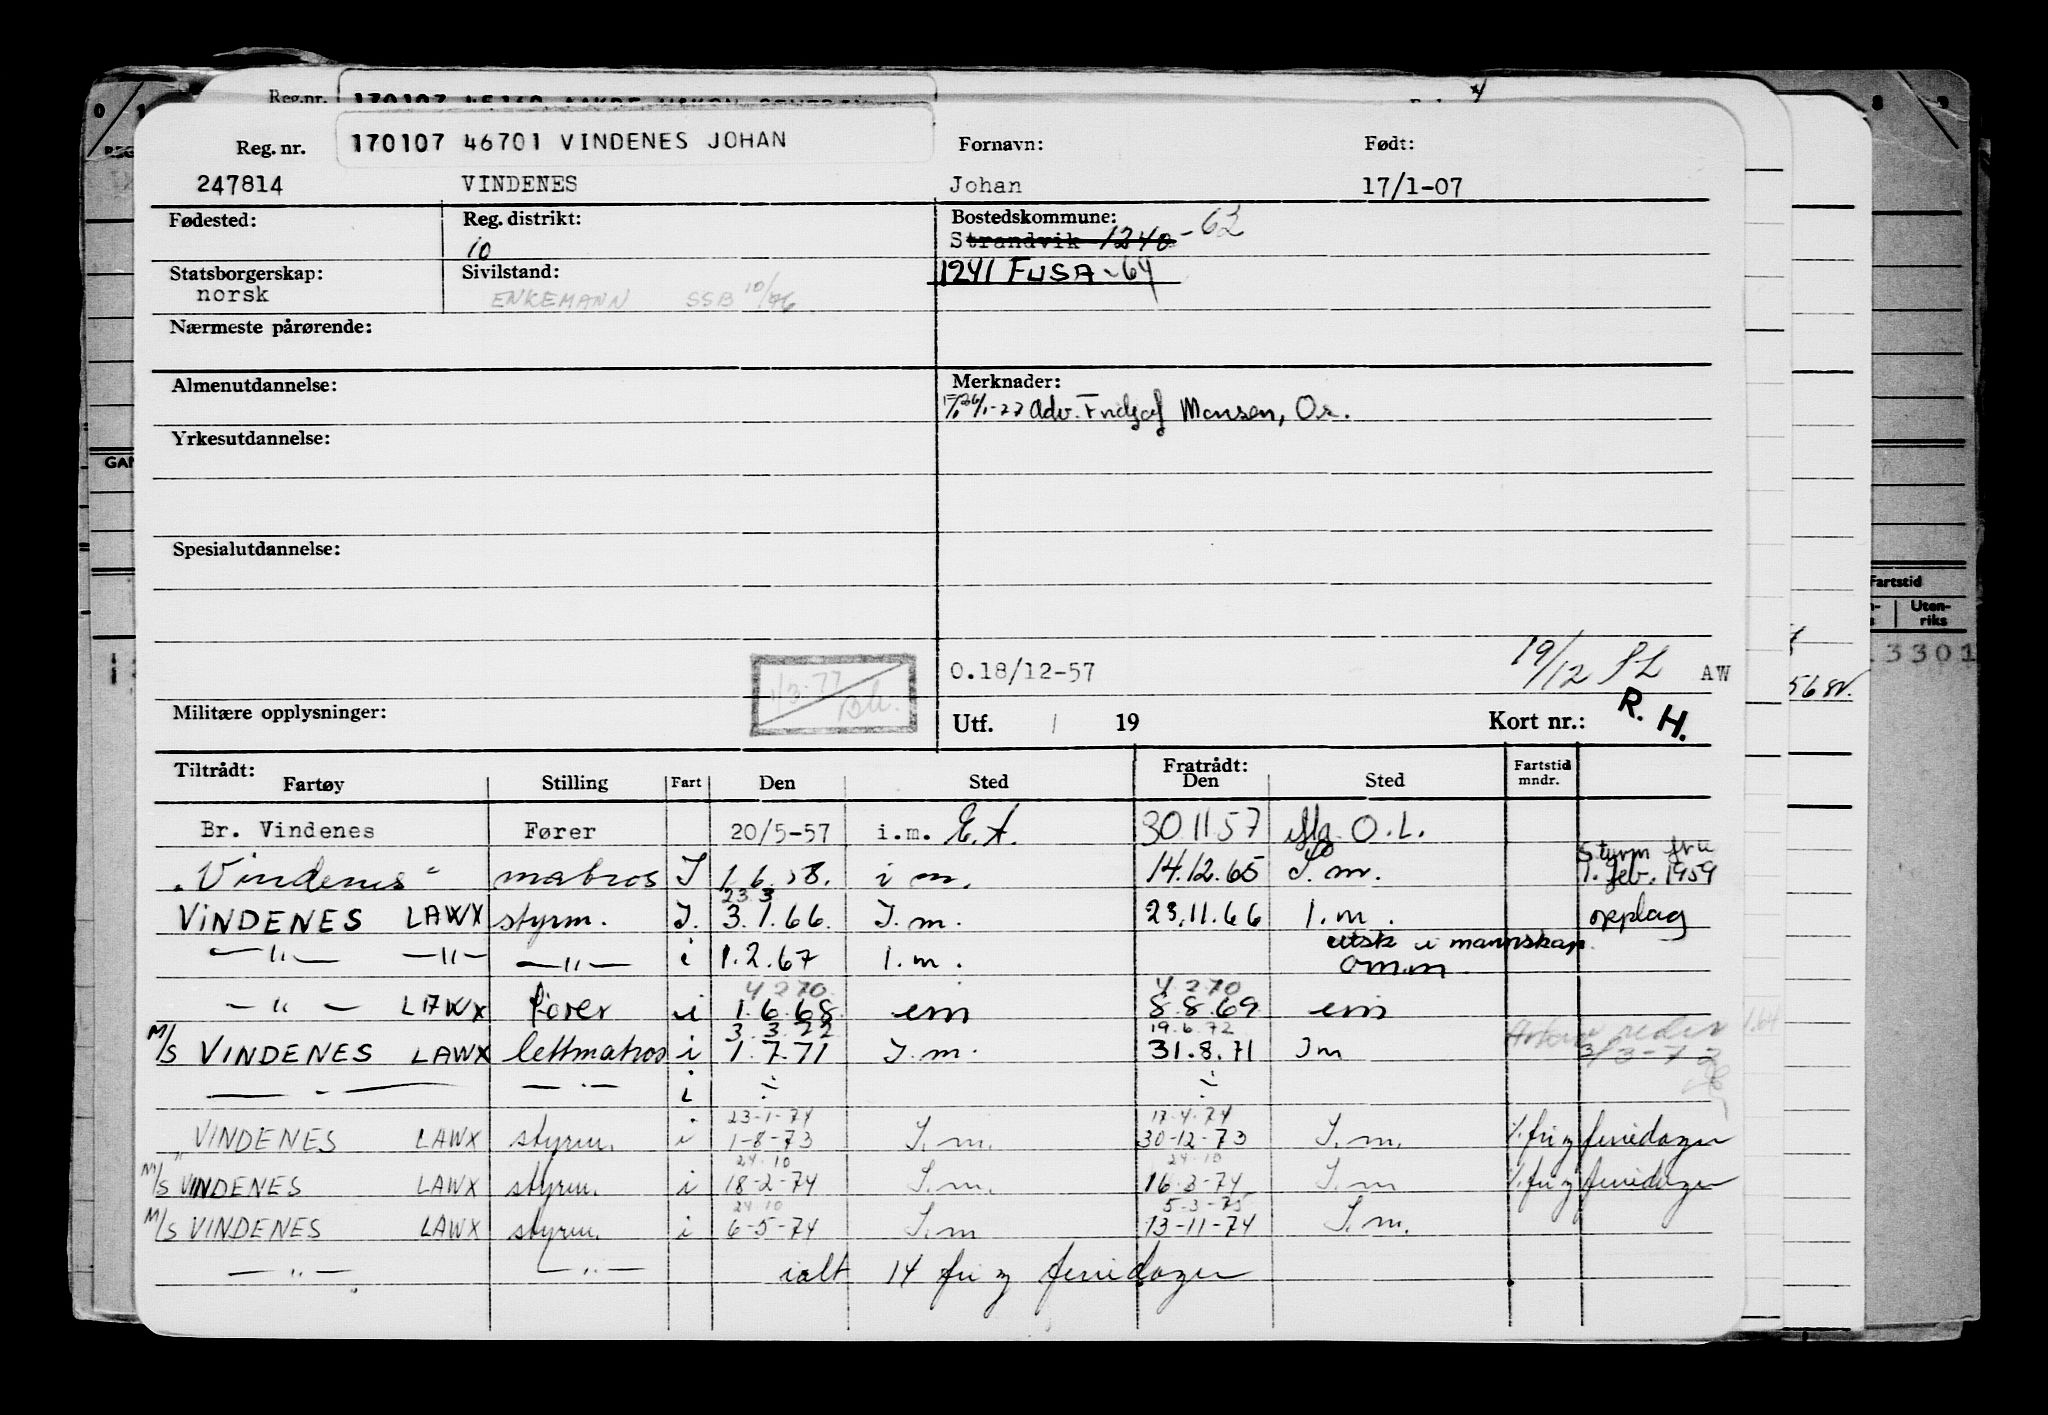 Reg. nr.
170107 46701 VINDENES JOHAN
Fornavn:
Født:
247814
VINDENES
Johan
17/1-07
Fødested:
Reg. distrikt:
10
Bostedskommune:
Strandvik 1240 -62
Statsborgerskap:
norsk
Sivilstand:
ENKEMANN SSB 10/76
1241 FUSA -64
Nærmeste pårørende:
Almenutdannelse:
Merknader:
Adv. Fridtjof Monsen, Os.
Yrkesutdannelse:
Spesialutdannelse:
1/3-77
O.18/12-57
19/12 SL AW
R. H.
Militære opplysninger:
Utf. / 19
Kort nr.:
Tiltrådt:
Fratrådt:
Fartøy Stilling Fart Den Sted Den Sted Fartstid mndr.
Br. Vindenes Fører 20/5-57 i.m. E.A. 30.11.57 O.L.
styrm fra
"Vindenes" matros I 1.6.58. i m. 14.12.65 I.m. 1. feb. 1959
23.3
VINDENES LAWX styrm. I. 3.1.66. I.m. 23.11.66 1.m. opplag
utsk i mannskap
—"— —"— —"— i 1.2.67 1.m. omm
4 2 70 4.2.70
—"— LAWX fører i 1.6.68. em 8.8.69 em
3.3.72 19.6.72
M/S VINDENES LAWX lettmatros i 1.7.71 I.m. 31.8.71 Im
3/3-72
— — —"— i ÷ ÷
23-1-74 17.4.74
VINDENES LAWX styrm. i 1-8-73 I.m. 30-12-73 I.m. %. fri og feriedager
24.10 24.10
M/S VINDENES LAWX styrm. i 18-2-74 I.m. 16-3-74 I.m %. fri og feriedager
24.10 5-3-75
M/S VINDENES LAWX styrm. i 6-5-74 I.m 13-11-74 I.m.
—"— —"— ialt 14 fri og feriedager
Fartstid
Uten-
riks
3301